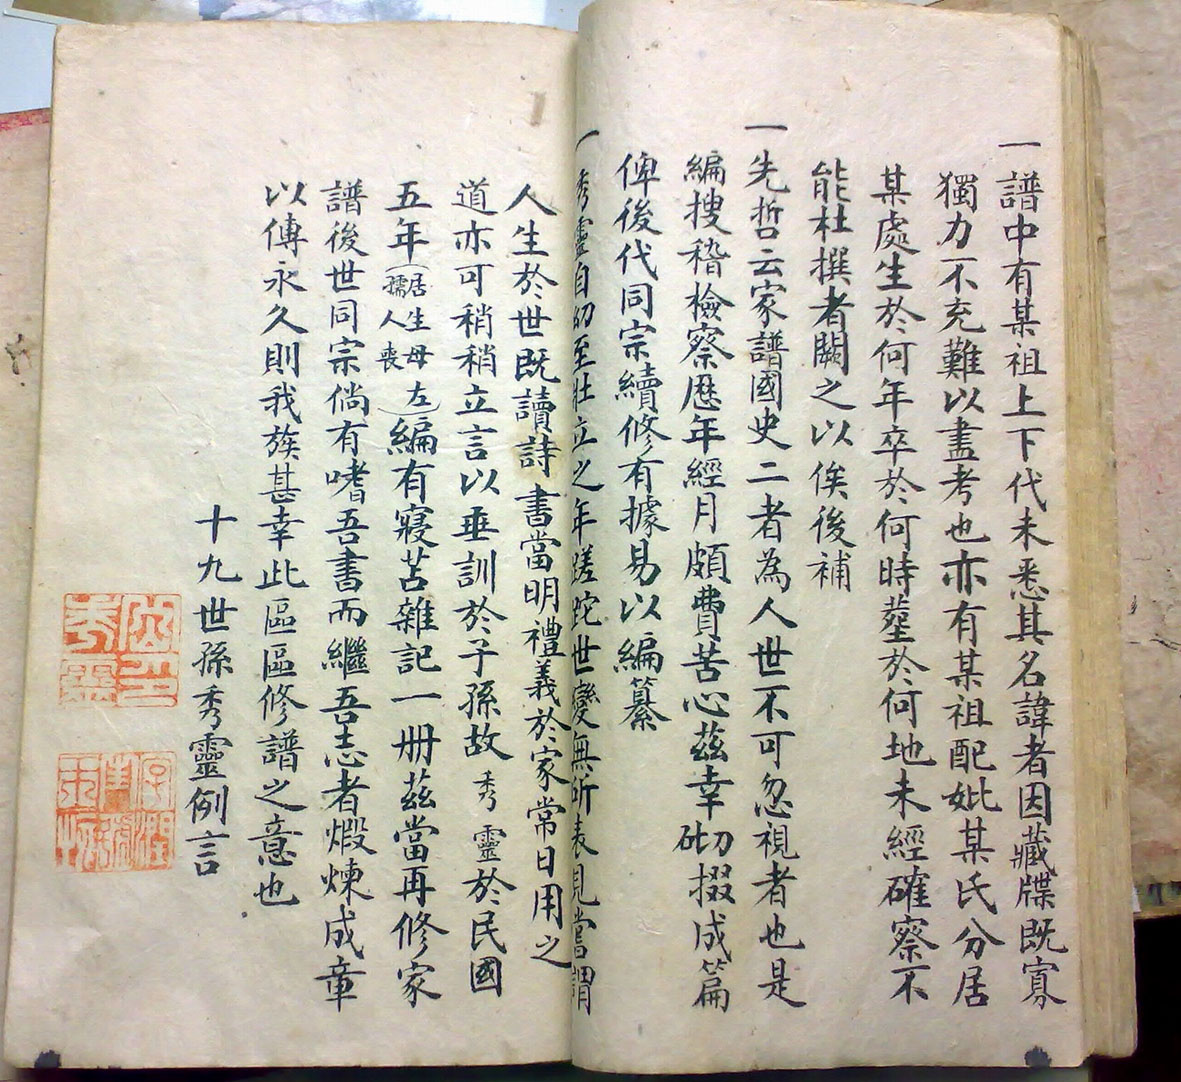 一譜中有某祖上下代未悉其名諱者因藏牒既寡
獨力不充難以盡考也亦有某祖配妣某氏分居
某處生於何年卒於何時塟於何地未經確察不
能杜撰者闕之以俟後補
一先哲云家譜國史二者為人世不可忽視者也是
編搜稽檢察歷年經月頗費苦心茲幸砌掇成篇
俾後代同宗續修有據易以編纂
一秀靈自幼至壯立之年蹉跎世變無所表見嘗謂
人生於世既讀詩書當明禮義於家常日用之
道亦可稍稍立言以垂訓於子孫故秀靈於民國
五年(居生母左孺人喪)編有寢苫雜記一册茲當再修家
譜後世同宗倘有嗜吾書而繼吾志者煆煉成章
以傳永久則我族甚幸此區區修譜之意也
十九世孫秀靈例言
秀靈